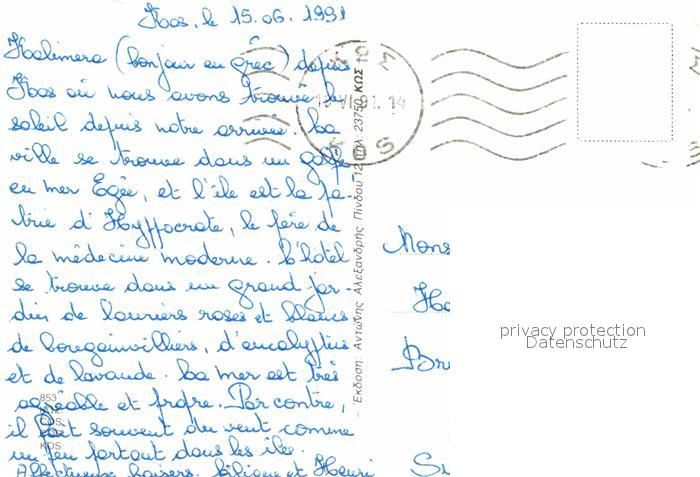 Kos, le 15.06.1991
Kalimera (bonjour en grec) depuis
Kos où nous avons trouvé le
soleil depuis notre arrivée. La
ville se trouve dans un golfe
en mer Egée, et l'île est la pa-
trie d'Hyppocrate, le père de
la médecine moderne. L'hôtel
se trouve dans un grand jar-
din de lauriers roses et blancs
de bougainvilliers, d'eucalyptus
et de lavande. La mer est très
agréable et propre. Par contre,
il fait souvent du vent comme
un peu partout dans les îles.
Affectueux baisers. et Henri
853
KOS
Έκδοση: Αντώνης Αλεξανδρής Πίνδου 12 Τηλ. 23750 ΚΩΣ
VI 91. 14
Mons
Ho
Bru
Su
privacy protection
Datenschutz